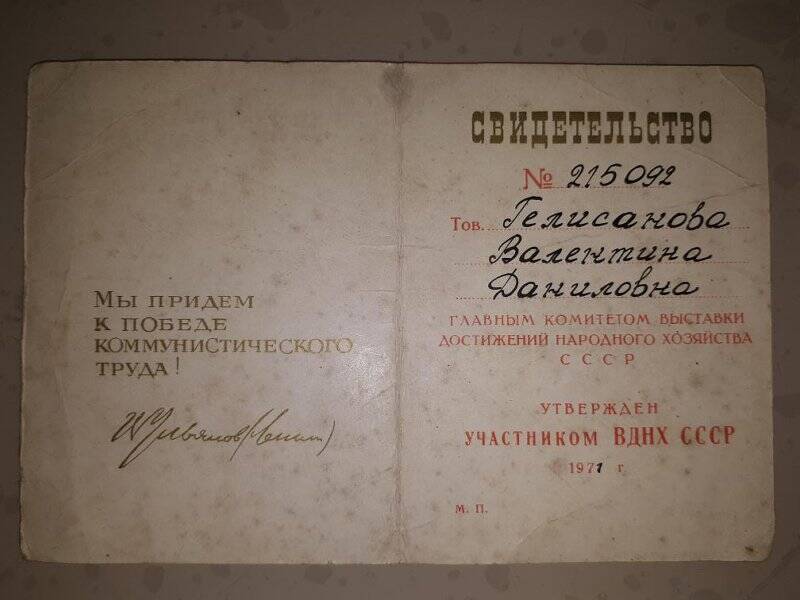 Мы придем
к победе
коммунистического
труда!
В Ульянов (Ленин)
СВИДЕТЕЛЬСТВО
№ 215092
Тов. Гелисанова
Валентина
Даниловна
ГЛАВНЫМ КОМИТЕТОМ ВЫСТАВКИ
ДОСТИЖЕНИЙ НАРОДНОГО ХОЗЯЙСТВА
СССР
УТВЕРЖДЕН
УЧАСТНИКОМ ВДНХ СССР
1971 г
М. П.